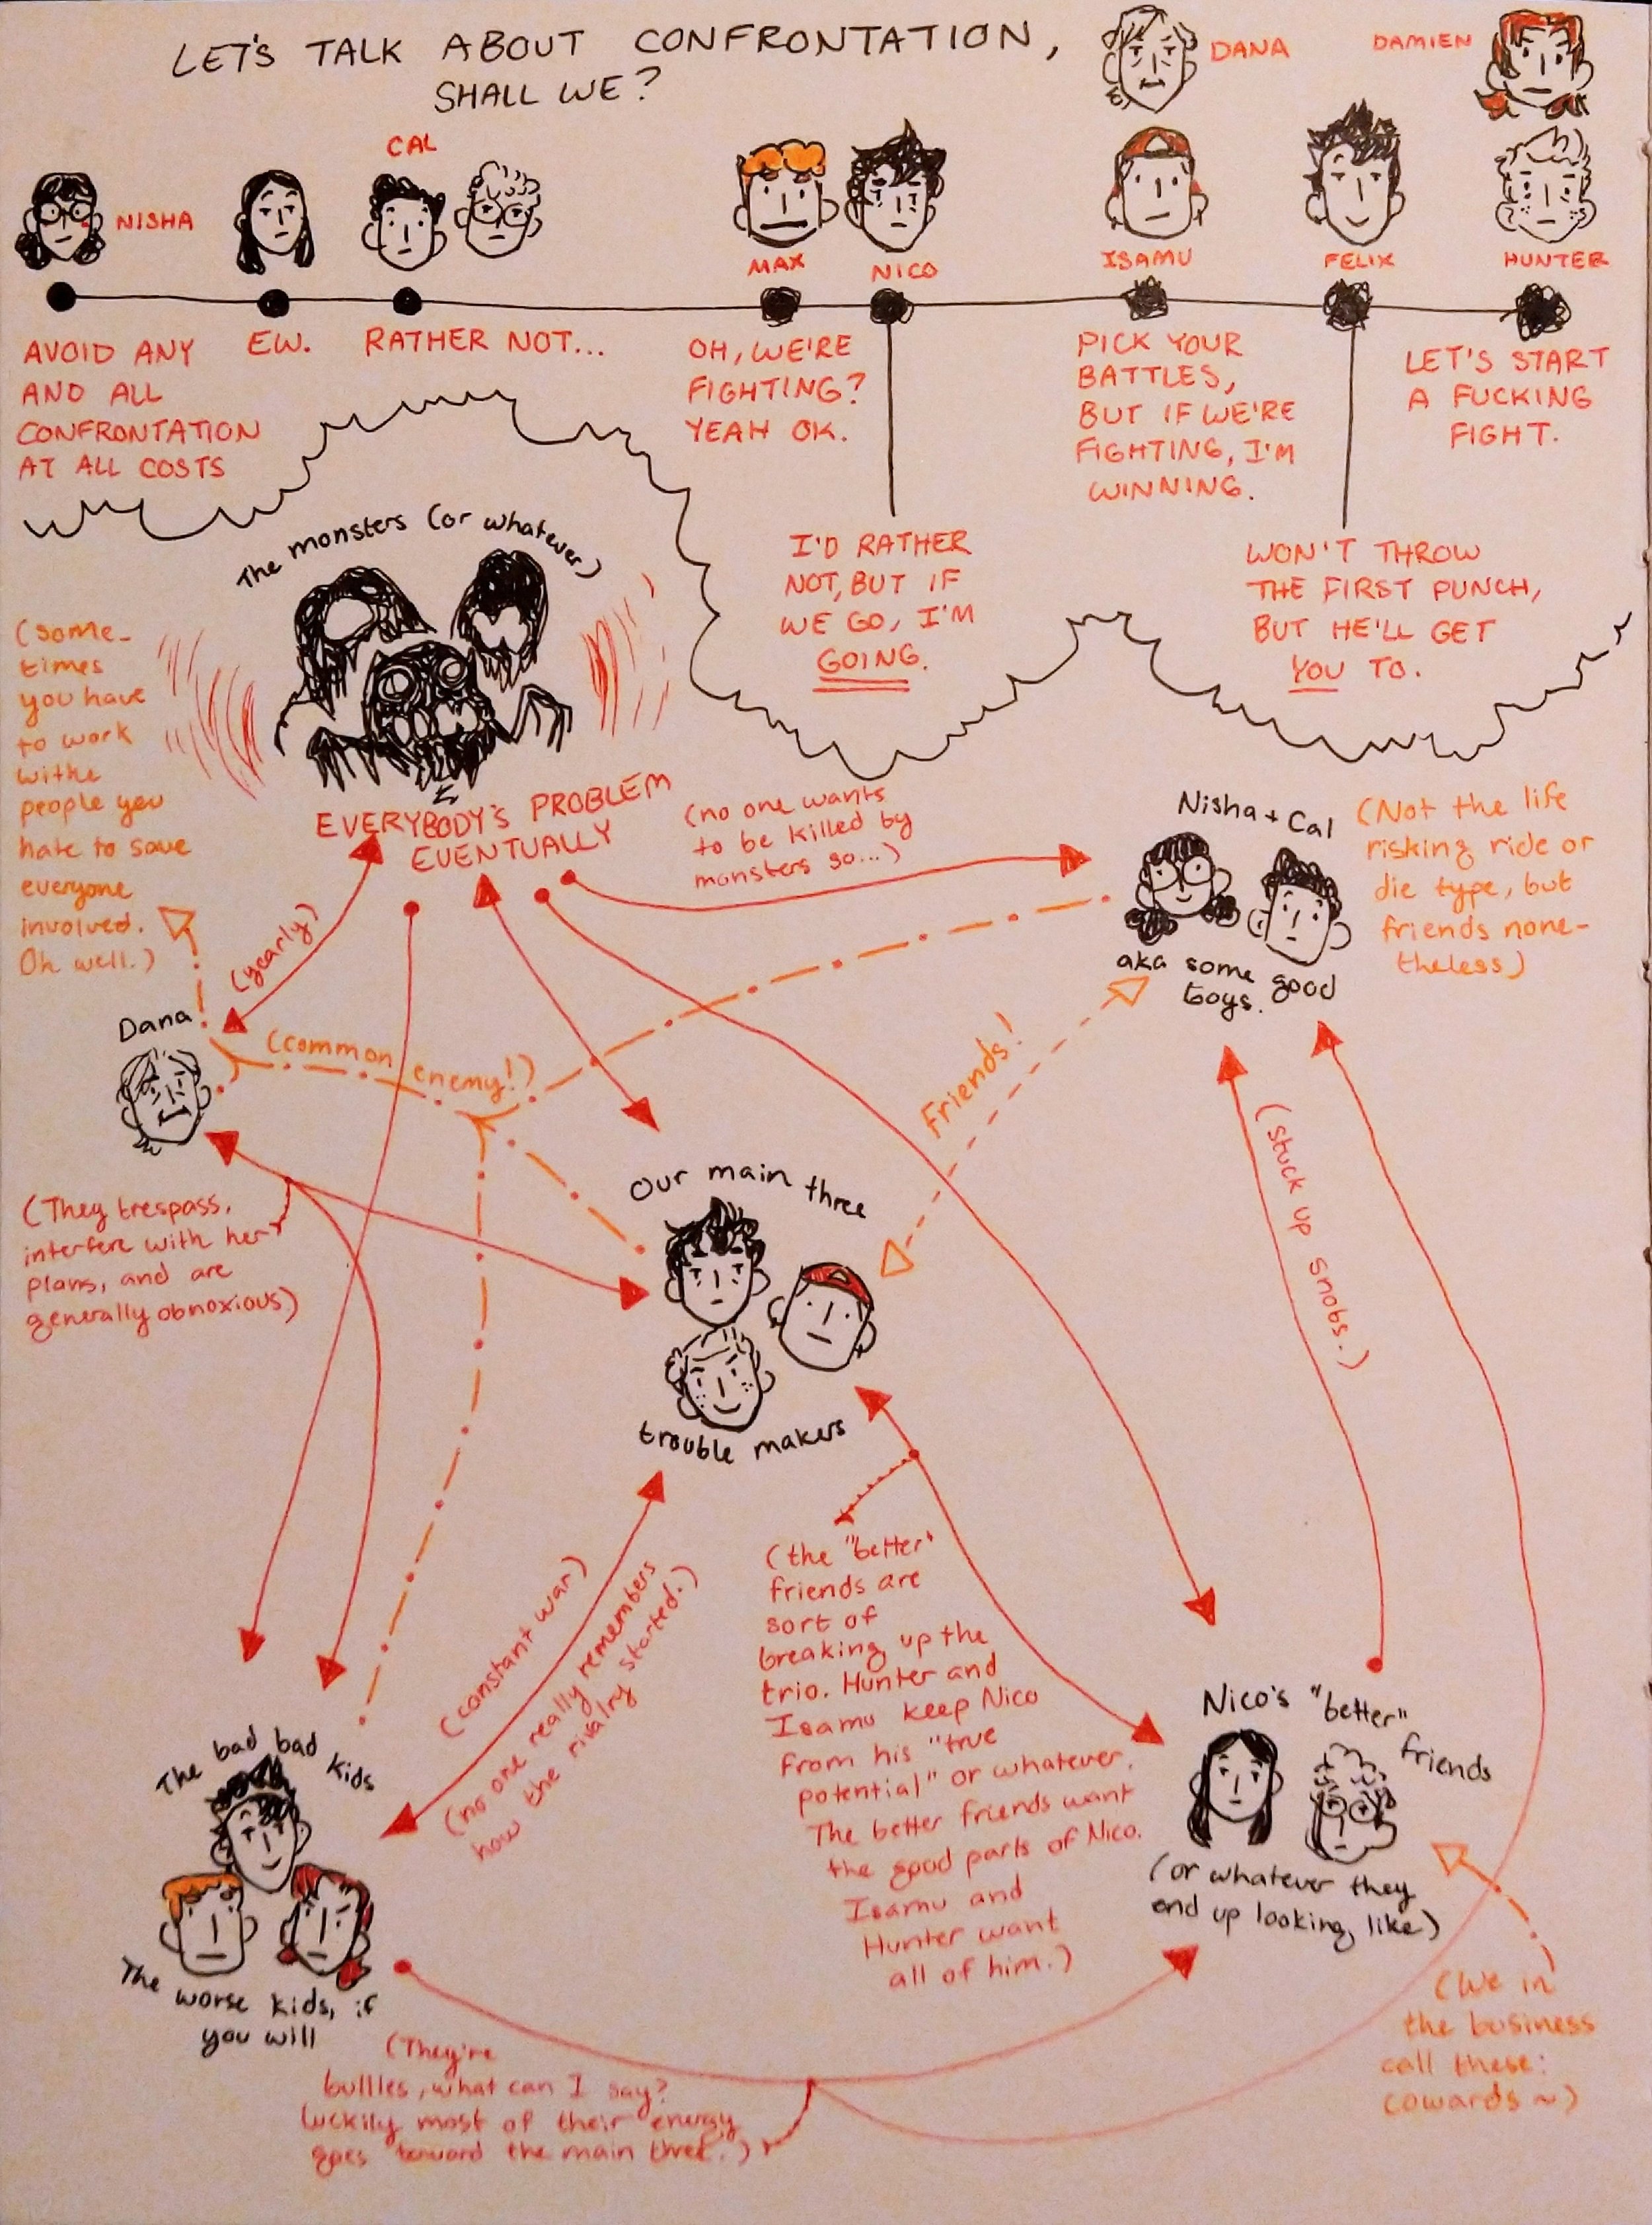 LET'S TALK ABOUT CONFRONTATION,
SHALL WE?
DANA
DAMIEN
NISHA
CAL
MAX
NICO
ISAMU
FELIX
HUNTER
AVOID ANY
AND ALL
CONFRONTATION
AT ALL COSTS
EW.
RATHER NOT...
OH, WE'RE
FIGHTING?
YEAH OK.
I'D RATHER
NOT, BUT IF
WE GO, I'M
GOING.
PICK YOUR
BATTLES,
BUT IF WE'RE
FIGHTING, I'M
WINNING.
WON'T THROW
THE FIRST PUNCH,
BUT HE'LL GET
YOU TO.
LET'S START
A FUCKING
FIGHT.
The monsters (or whatever)
EVERYBODY'S PROBLEM
EVENTUALLY
(some-
times
you have
to work
withe
people you
hate to save
everyone
involved.
Oh well.)
(no one wants
to be killed by
monsters so...)
Nisha + Cal
aka some good
boys.
(Not the life
risking ride or
die type, but
friends none-
theless)
(yearly)
Dana
(common enemy!)
Friends!
(They trespass,
interfere with her
plans, and are
generally obnoxious)
Our main three
trouble makers
(stuck up snobs.)
(constant war)
(no one really remembers
how the rivalry started.)
(the "better"
friends are
sort of
breaking up the
trio. Hunter and
Isamu keep Nico
from his "true
potential" or whatever.
The better friends want
the good parts of Nico.
Isamu and
Hunter want
all of him.)
Nico's "better" friends
(or whatever they
end up looking like)
The bad bad kids
The worse kids, if
you will
(They're
bullies, what can I say?
Luckily most of their energy
goes toward the main three.)
(We in
the business
call these:
cowards ~)